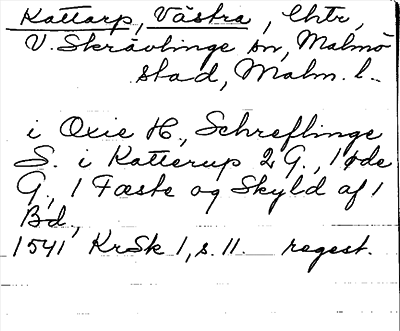 Kattarp, Västra, Chtr,
V. Skrävlinge sn, Malmö
stad, Malm. l.
i Oxie H, Schreflinge
S. i Katterup 2 G., 1 øde
G., 1 Fæste og Skyld af 1
Bd.,
1541 KrSk 1, s. 11. regest.